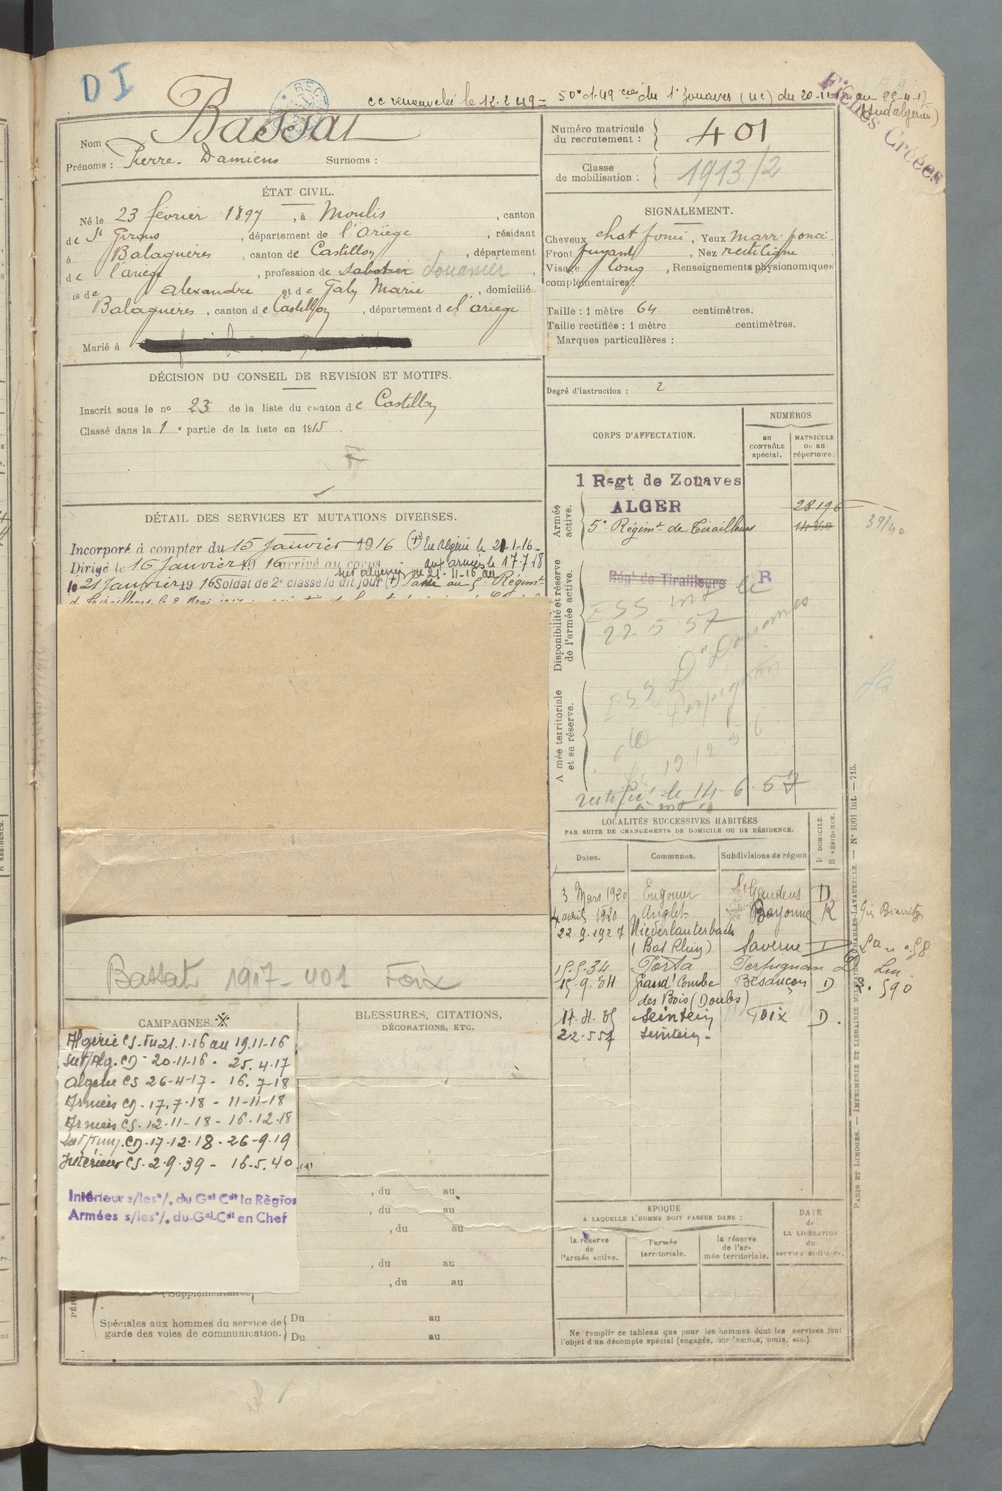 D I
cc renouvelé le 12.2.49 = 50e et 49 cie du 1er Zouaves (no) du 20-11-16 au 25-4-17
(Sud algérien)
Fiches Créées
Nom Bassat
Prénoms : Pierre-Damiens Surnoms :
Numéro matricule du recrutement : 401
Classe de mobilisation : 1913/2
ÉTAT CIVIL.
Né le 23 février 1897, à Moulis, canton
de St Girons, département de l'Ariège, résidant
à Balaguères, canton de Castillon, département
de l'ariège, profession de sabotier douanier,
fils de Alexandre et de Galy Marie, domiciliés
Balaguères, canton de Castillon, département de l'ariège
Marié à
SIGNALEMENT.
Cheveux chat foncé, Yeux marr foncé
Front fuyant, Nez rectiligne
Visage long, Renseignements physionomiques
complémentaires:
Taille : 1 mètre 64 centimètres.
Taille rectifiée : 1 mètre centimètres.
Marques particulières :
Degré d'instruction : 2
DÉCISION DU CONSEIL DE REVISION ET MOTIFS.
Inscrit sous le no 23 de la liste du canton de Castillon
Classé dans la 1e partie de la liste en 1915.
DÉTAIL DES SERVICES ET MUTATIONS DIVERSES.
Incorporé à compter du 15 Janvier 1916 (+) En Algérie le 21-1-16-
Dirigé le 16 Janvier 1916 arrivé au corps aux armées le 17-7-18
sud algérien le 21-11-16 au
le 21 Janvier 1916 Soldat de 2e classe le dit jour (+) Passé au 5e Régimt
CORPS D'AFFECTATION.
NUMÉROS
AU CONTRÔLE spécial.
MATRICULE OU AU répertoire.
Armée active.
1 Regt de Zouaves
ALGER 28196
5e Régimt de Tirailleurs
39/40
Disponibilité et réserve de l'armée active.
Régt de Tirailleurs R
ESS
22.5.57
Dn Douanes
Armée territoriale et sa réserve.
ESS
Perpignan
rectifié le 14-6-57
LOCALITÉS SUCCESSIVES HABITÉES
PAR SUITE DE CHANGEMENTS DE DOMICILE OU DE RÉSIDENCE.
Dates. Communes. Subdivisions de région D DOMICILE. R RÉSIDENCE.
3 Mars 1920 Engomer St Gaudens D
4 avril 1920 Anglet Bayonne R
22.9.1927 Niederlauterbach
(Bas Rhin) Saverne D
15-5-34 Porta Perpignan D
15-9-34 Grand'Combe Besançon D
des Bois (Doubs)
Seintein Foix D.
22-5-57 Seintein-
Bassat 1917-401 Foix
CAMPAGNES.
Algérie CS. du 21.1.16 au 19.11.16
Sud/Alg. CD - 20-11-16 - 25.4.17
Algérie CS 26-4-17 - 16.7-18
Armées CD - 17.7.18 - 11-11-18
Armées CS. 12-11-18 - 16-12.18
Sud/Tun. CD-17-12.18 - 26-9.19
Intérieur CS. 2.9.39 - 16-5.40
Intérieur s/les o/. du Gal Cdt la Région
Armées s/les o/. du Gal Cdt en Chef
BLESSURES, CITATIONS,
DÉCORATIONS, ETC.
, du au
, du au
, du au
, du au
, du au
Supplémentaires
Spéciales aux hommes du service de garde des voies de communication. Du au
Du au
ÉPOQUE
A LAQUELLE L'HOMME DOIT PASSER DANS :
la réserve de l'armée active.
l'armée territoriale.
la réserve de l'armée territoriale.
DATE de LA LIBÉRATION du service militaire.
Ne remplir ce tableau que pour les hommes dont les services font
l'objet d'un décompte spécial (engagés, ajournés, omis, etc.).
PARIS ET LIMOGES. — IMPRIMERIE ET LIBRAIRIE MILITAIRES CHARLES-LAVAUZELLE. — No 1001 Int. — 715.